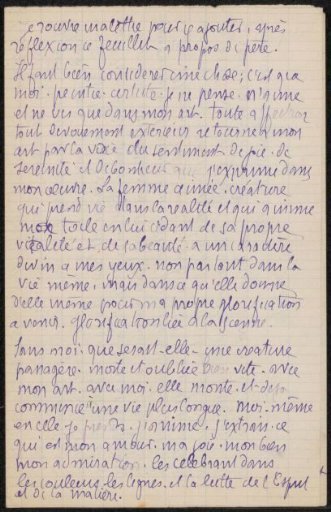 je rouvre ma lettre pour y ajouter, après
réflexion ce feuillet à propos de père.
Il faut bien considérer une chose, c'est que
moi. peintre. artiste. je ne pense. n'aime
et ne vis que dans mon art. toute affection
tout dévouement extérieur retourne à mon
art par la voie du sentiment de joie. de
sérénité et de bonheur que j'exprime dans
mon œuvre. La femme aimée. créature
qui prend vie dans la réalité et qui anime
ma toile en lui cédant de sa propre
vitalité et de sa beauté a un caractère
divin à mes yeux. non pas tout dans la
vie même, mais dans ce qu'elle donne
d'elle même pour ma propre glorification
à venir. glorification liée à la sienne.
Sans moi. que serait-elle - une créature
passagère. morte et oubliée bien vite. avec
mon art. avec moi. elle monte et
commence une vie plus longue. Moi-même
en elle je prends. j'anime. j'extrais ce
qui est mon amour. ma joie. mon bien
mon admiration. les célébrant dans
les couleurs. les lignes. et la lutte de l'Esprit
et de la matière.